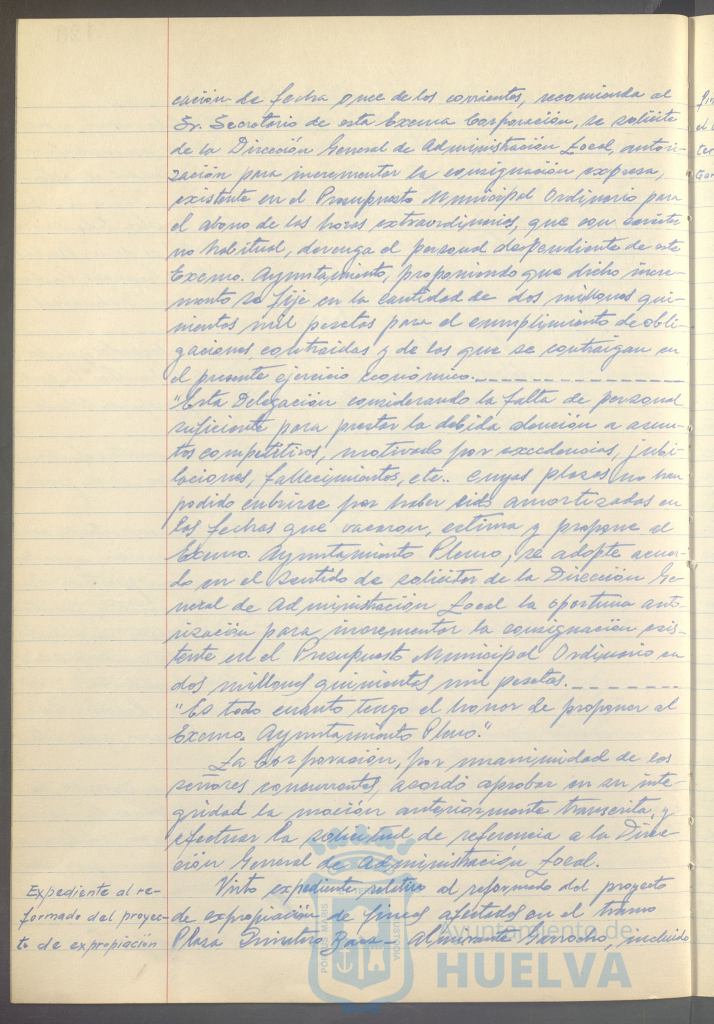 cación de fecha once de los corrientes, recomienda al
Sr. Secretario de esta Excma Corporación, se solicite
de la Dirección General de Administración Local, autori-
zación para incrementar la consignación expresa,
existente en el Presupuesto Municipal Ordinario para
el abono de las horas extraordinarias, que con carácter
no habitual, devenga el personal dependiente de este
Excmo. Ayuntamiento, proponiendo que dicho incre-
mento se fije en la cantidad de dos millones qui-
nientas mil pesetas para el cumplimiento de obli-
gaciones contraidas y de las que se contraigan en
el presente ejercicio económico.
"Esta Delegación considerando la falta de personal
suficiente para prestar la debida atención a asun-
tos competitivos, motivado por excedencias, jubi-
laciones, fallecimientos, etc.. cuyas plazas no han
podido cubrirse por haber sido amortizadas en
las fechas que vacaron, estima y propone al
Excmo. Ayuntamiento Pleno, se adopte acuer-
do en el sentido de solicitar de la Dirección Ge-
neral de Administración Local la oportuna auto-
rización para incrementar la consignación exis-
tente en el Presupuesto Municipal Ordinario en
dos millones quinientas mil pesetas.
"Es todo cuanto tengo el honor de proponer al
Excmo. Ayuntamiento Pleno."
La Corporación, por unanimidad de los
señores concurrentes, acordó aprobar en su inte-
gridad la moción anteriormente transcrita, y
efectuar la solicitud de referencia a la Direc-
ción General de Administración Local.
Expediente al re-
formado del proyec-
to de expropiación
Visto expediente relativo al reformado del proyecto
de expropiación de fincas afectadas en el tramo
Plaza Quintero Baez - Almirante Garrocho, incluido
Ayuntamiento de
HUELVA